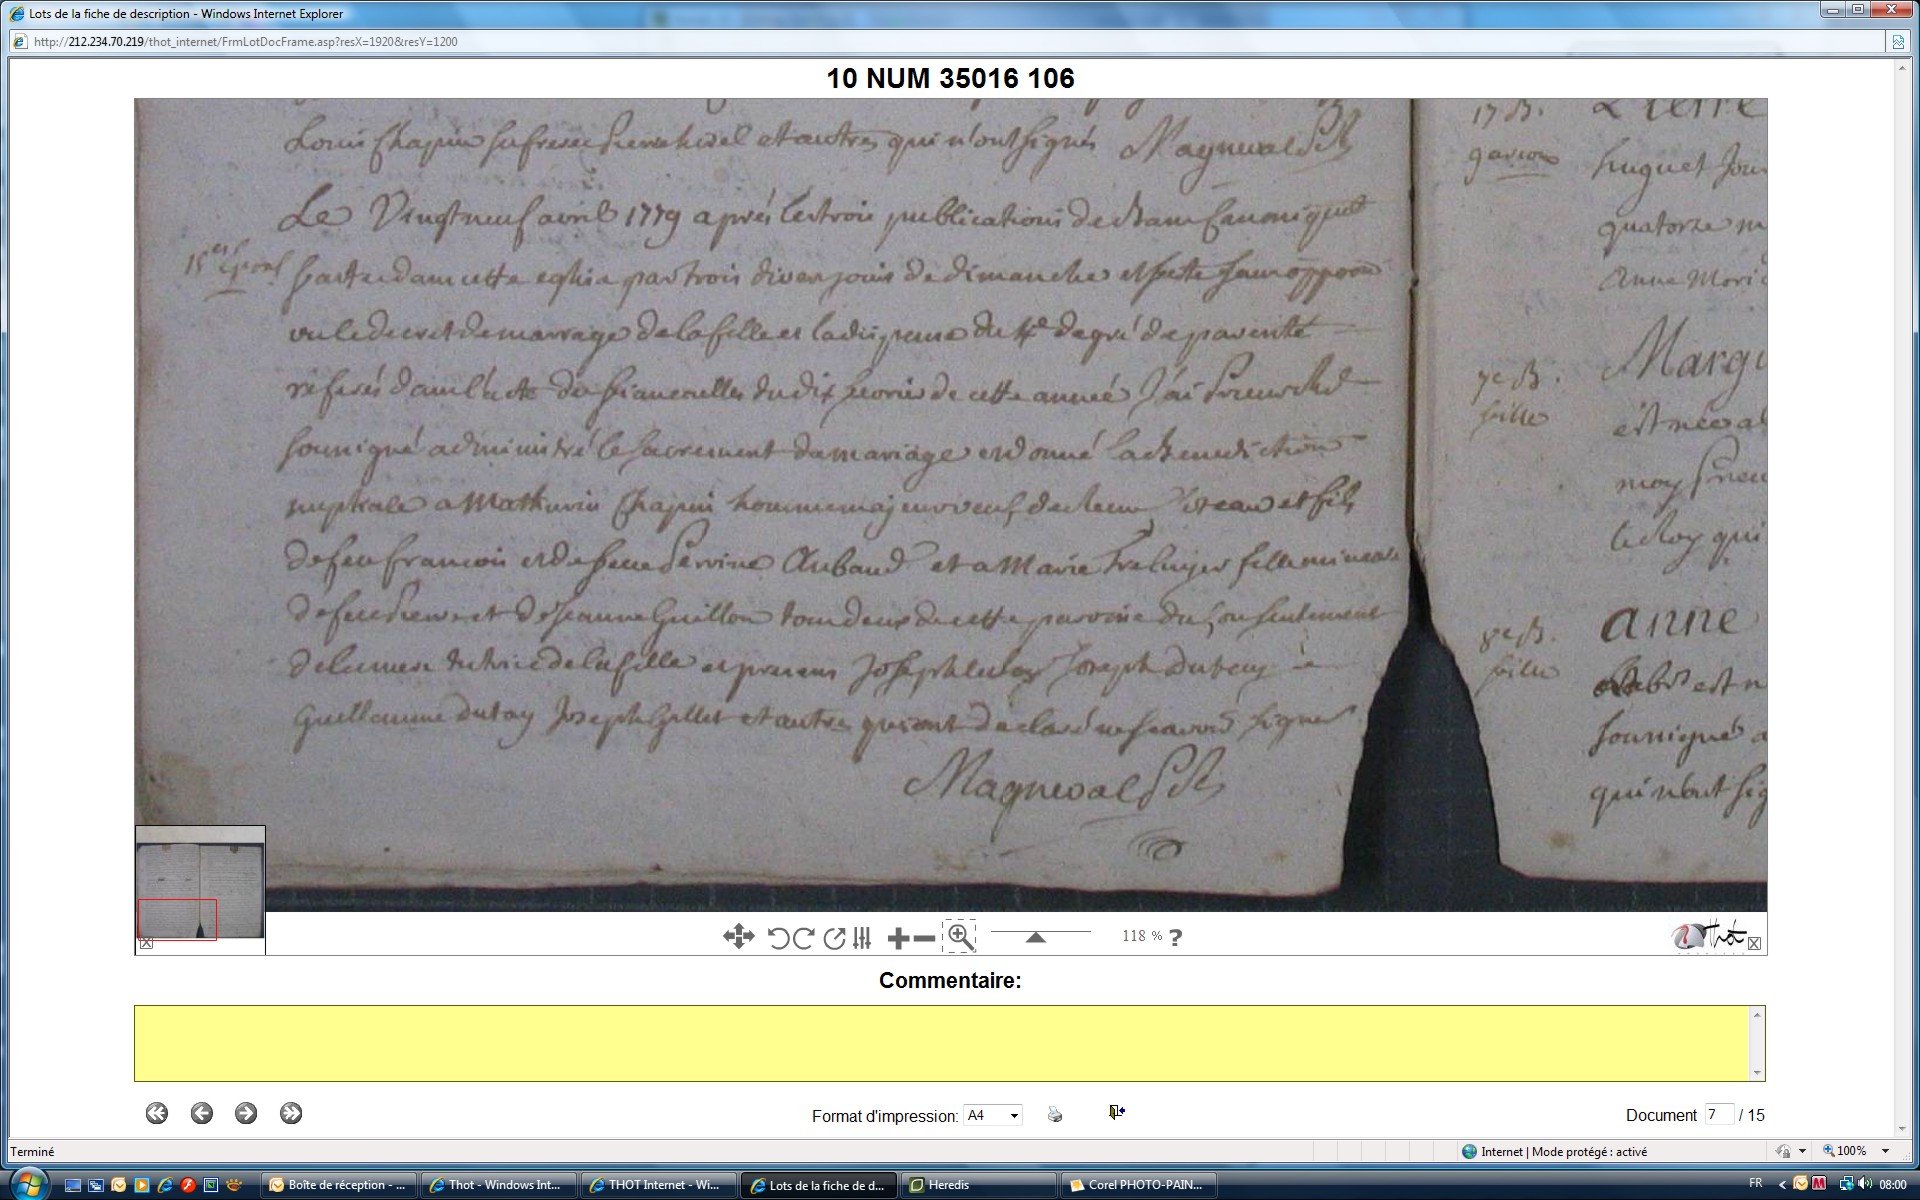 Lots de la fiche de description - Windows Internet Explorer
http://212.234.70.219/thot_internet/FrmLotDocFrame.asp?resX=1920&resY=1200
10 NUM 35016 106
Louis Chapin et autres qui n'ont signés Magneval
Le Vingt neuf avril 1779 aprés les trois publications de Bans Canoniquet
15e
faitte dans cette eglise par trois divers jours de dimanche et feste sans oppon
vu le decret de mariage de la fille et la dispense du 4e degré de parenté
référés dans l'acte de fiancailles du dix fevrier de cette année J'ai
soussigné administré le sacrement de mariage et donné la Benediction
nuptiale a Mathurin Chapin homme majeur veuf de et fils
de feu francois et de feue Perrine Aubaud et a Marie fille mineure
de feu Pierre et de Jeanne Guillon tous deux de cette paroisse du consentement
de la mere tutrice de la fille et presens Joseph Joseph
Guillaume dutay Joseph Gillet et autres qui ont declaré ne scavoir signer
Magneval
17 B.
garcon
huguet
quatorze
Anne
7e B.
fille
Margu
est née a
moy
qui
8e B.
fille
anne
est n
soussigné a
qui n'ont sig
118 % ?
Thot
Commentaire:
Format d'impression: A4
Document 7 / 15
Terminé
Internet | Mode protégé : activé
100%
Boîte de réception - ...
Thot - Windows Int...
THOT Internet - Wi...
Lots de la fiche de d...
Heredis
Corel PHOTO-PAIN...
FR
08:00